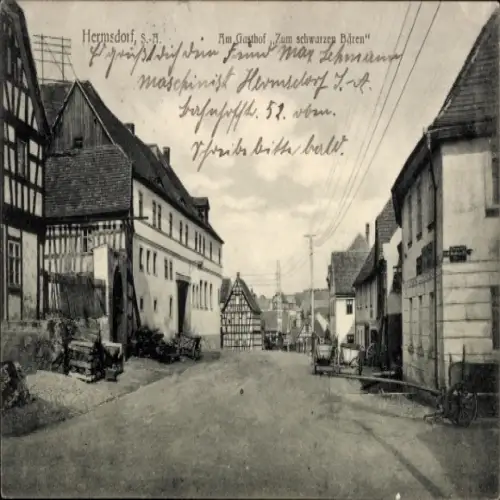 Hermsdorf, S.-A. Am Gasthof „Zum schwarzen Bären"
Es grüßt dich dein Freund Max Lehmann
Maschinist Hermsdorf S.-A.
Bahnhofstr. 52. oben.
Schreibe bitte bald.